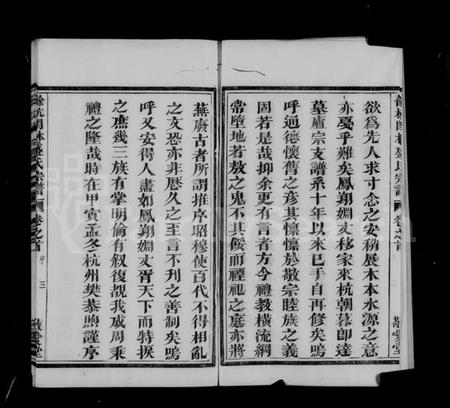 餘杭閑林盛氏宗譜 卷之首 敬愛堂
欲爲先人求寸念之安稍展木本水源之意
亦戞乎難矣鳳翔嫻丈移家來杭朝暮卽達
墓廬宗支譜系十年以來已手自再修矣嗚
呼通德懷舊之彥其懷懷於敬宗睦族之義
固若是哉抑余更有言者方今禮教橫流綱
常墮地若敖之鬼不其餒而禋祀之庭亦將
蕪廢古者所謂推序昭穆使百代不得相亂
之文恐亦非歷久之至言不刋之善制矣嗚
呼又安得人盡如鳳翔嫻丈胥天下而特捩
之庶幾三族有掌明倫有敘復覩我成周秉
禮之隆哉時在甲寅孟冬杭州樊恭煦謹序
餘杭閑林盛氏宗譜 卷之首 序 三 敬愛堂